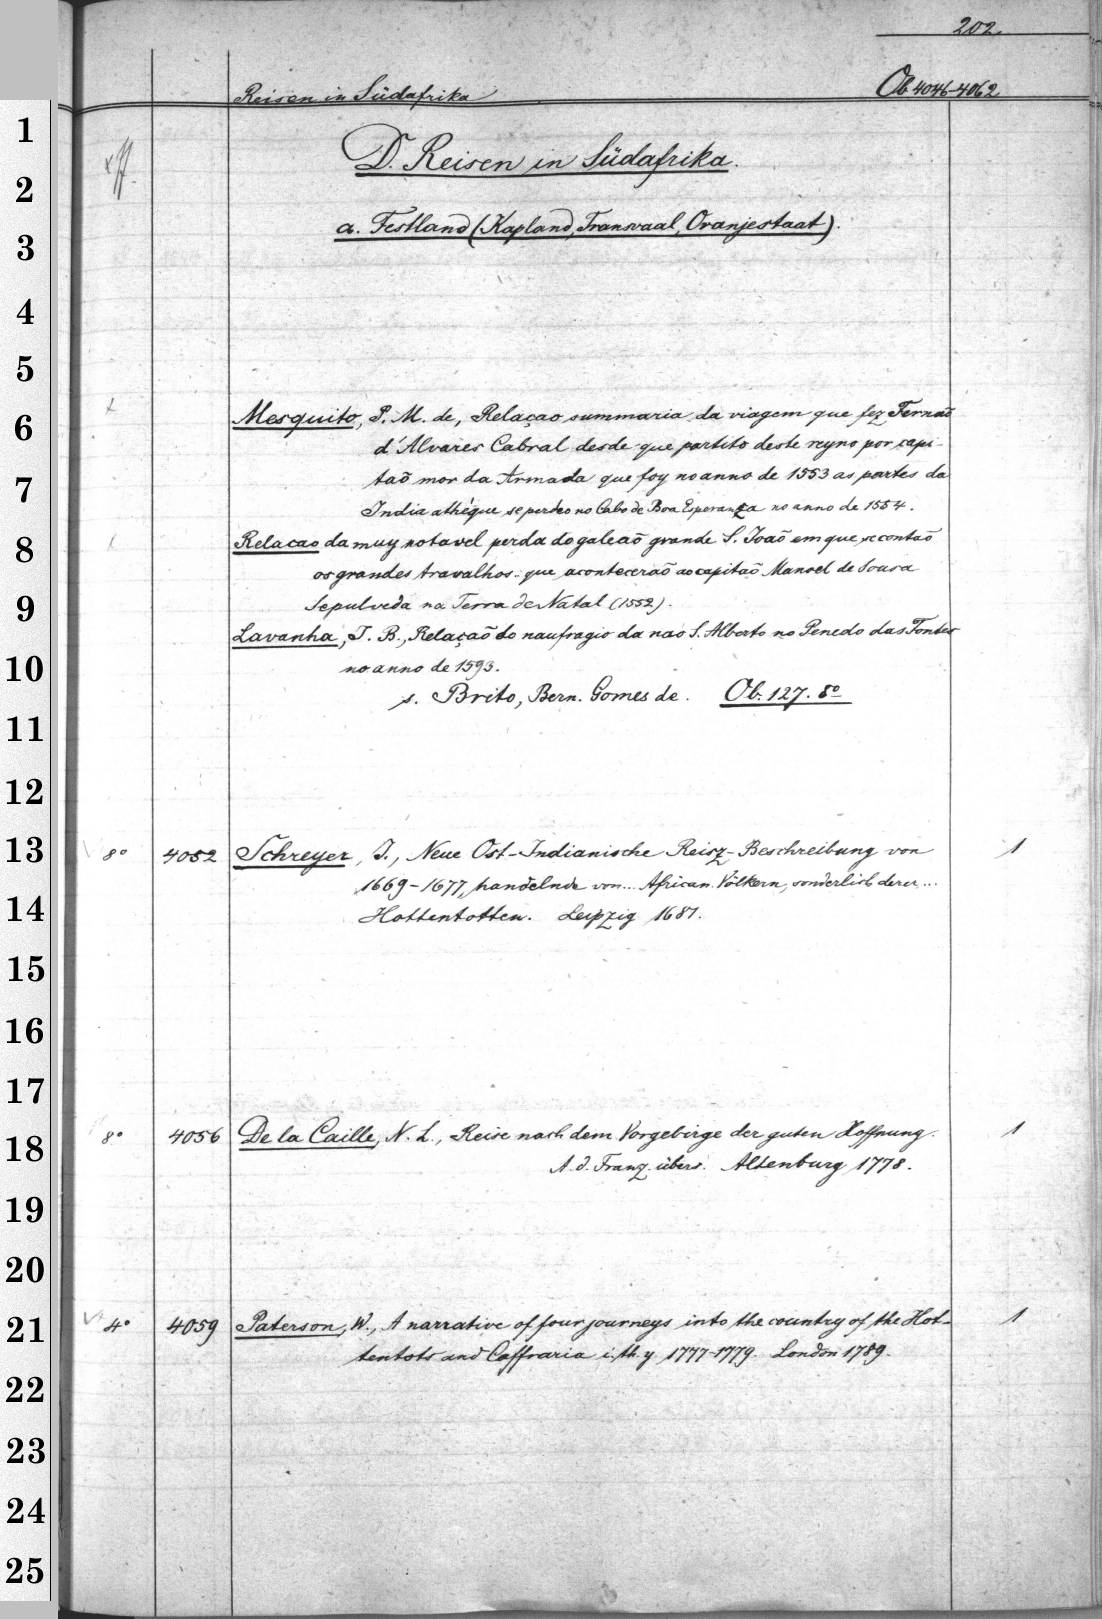 202.
Reisen in Südafrika Ob 4046-4062
D. Reisen in Südafrika.
a. Festland (Kapland, Transvaal, Oranjestaat).
Mesquito, P. M. de, Relaçao summaria da viagem que fez Fernaõ
d'Alvares Cabral desde que partito deste reyno por capi-
taõ mor da Armada que foy no anno de 1553 as partes da
India athèque se perdeo no Cabo de Boa Esperanza no anno de 1554.
Relacao da muy notavel perda do galeaõ grande S. Joaõ em que se contaõ
os grandes travalhos que aconteceraõ ao capitaõ Manoel de Sousa
Sepulveda na Terra de Natal (1552).
Lavanha, J. B., Relaçaõ do naufragio da nao S. Alberto no Penedo das Fontes
no anno de 1593.
s. Brito, Bern. Gomes de. Ob. 127. 8º
8º 4052 Schreyer, J., Neue Ost-Indianische Reisz-Beschreibung von 1
1669-1677, handelnde von... African. Völkern, sonderlich derer...
Hottentotten. Leipzig 1681.
8º 4056 De la Caille, N. L., Reise nach dem Vorgebirge der guten Hoffnung. 1
A. d. Franz. übers. Altenburg 1778.
4º 4059 Paterson, W., A narrative of four journeys into the country of the Hot- 1
tentots and Caffraria i. th. y 1777-1779. London 1789.
1
2
3
4
5
6
7
8
9
10
11
12
13
14
15
16
17
18
19
20
21
22
23
24
25